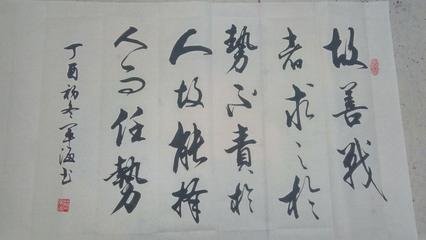 故善戰
者求之於
勢不責於
人故能擇
人而任勢
丁酉初冬軍海书